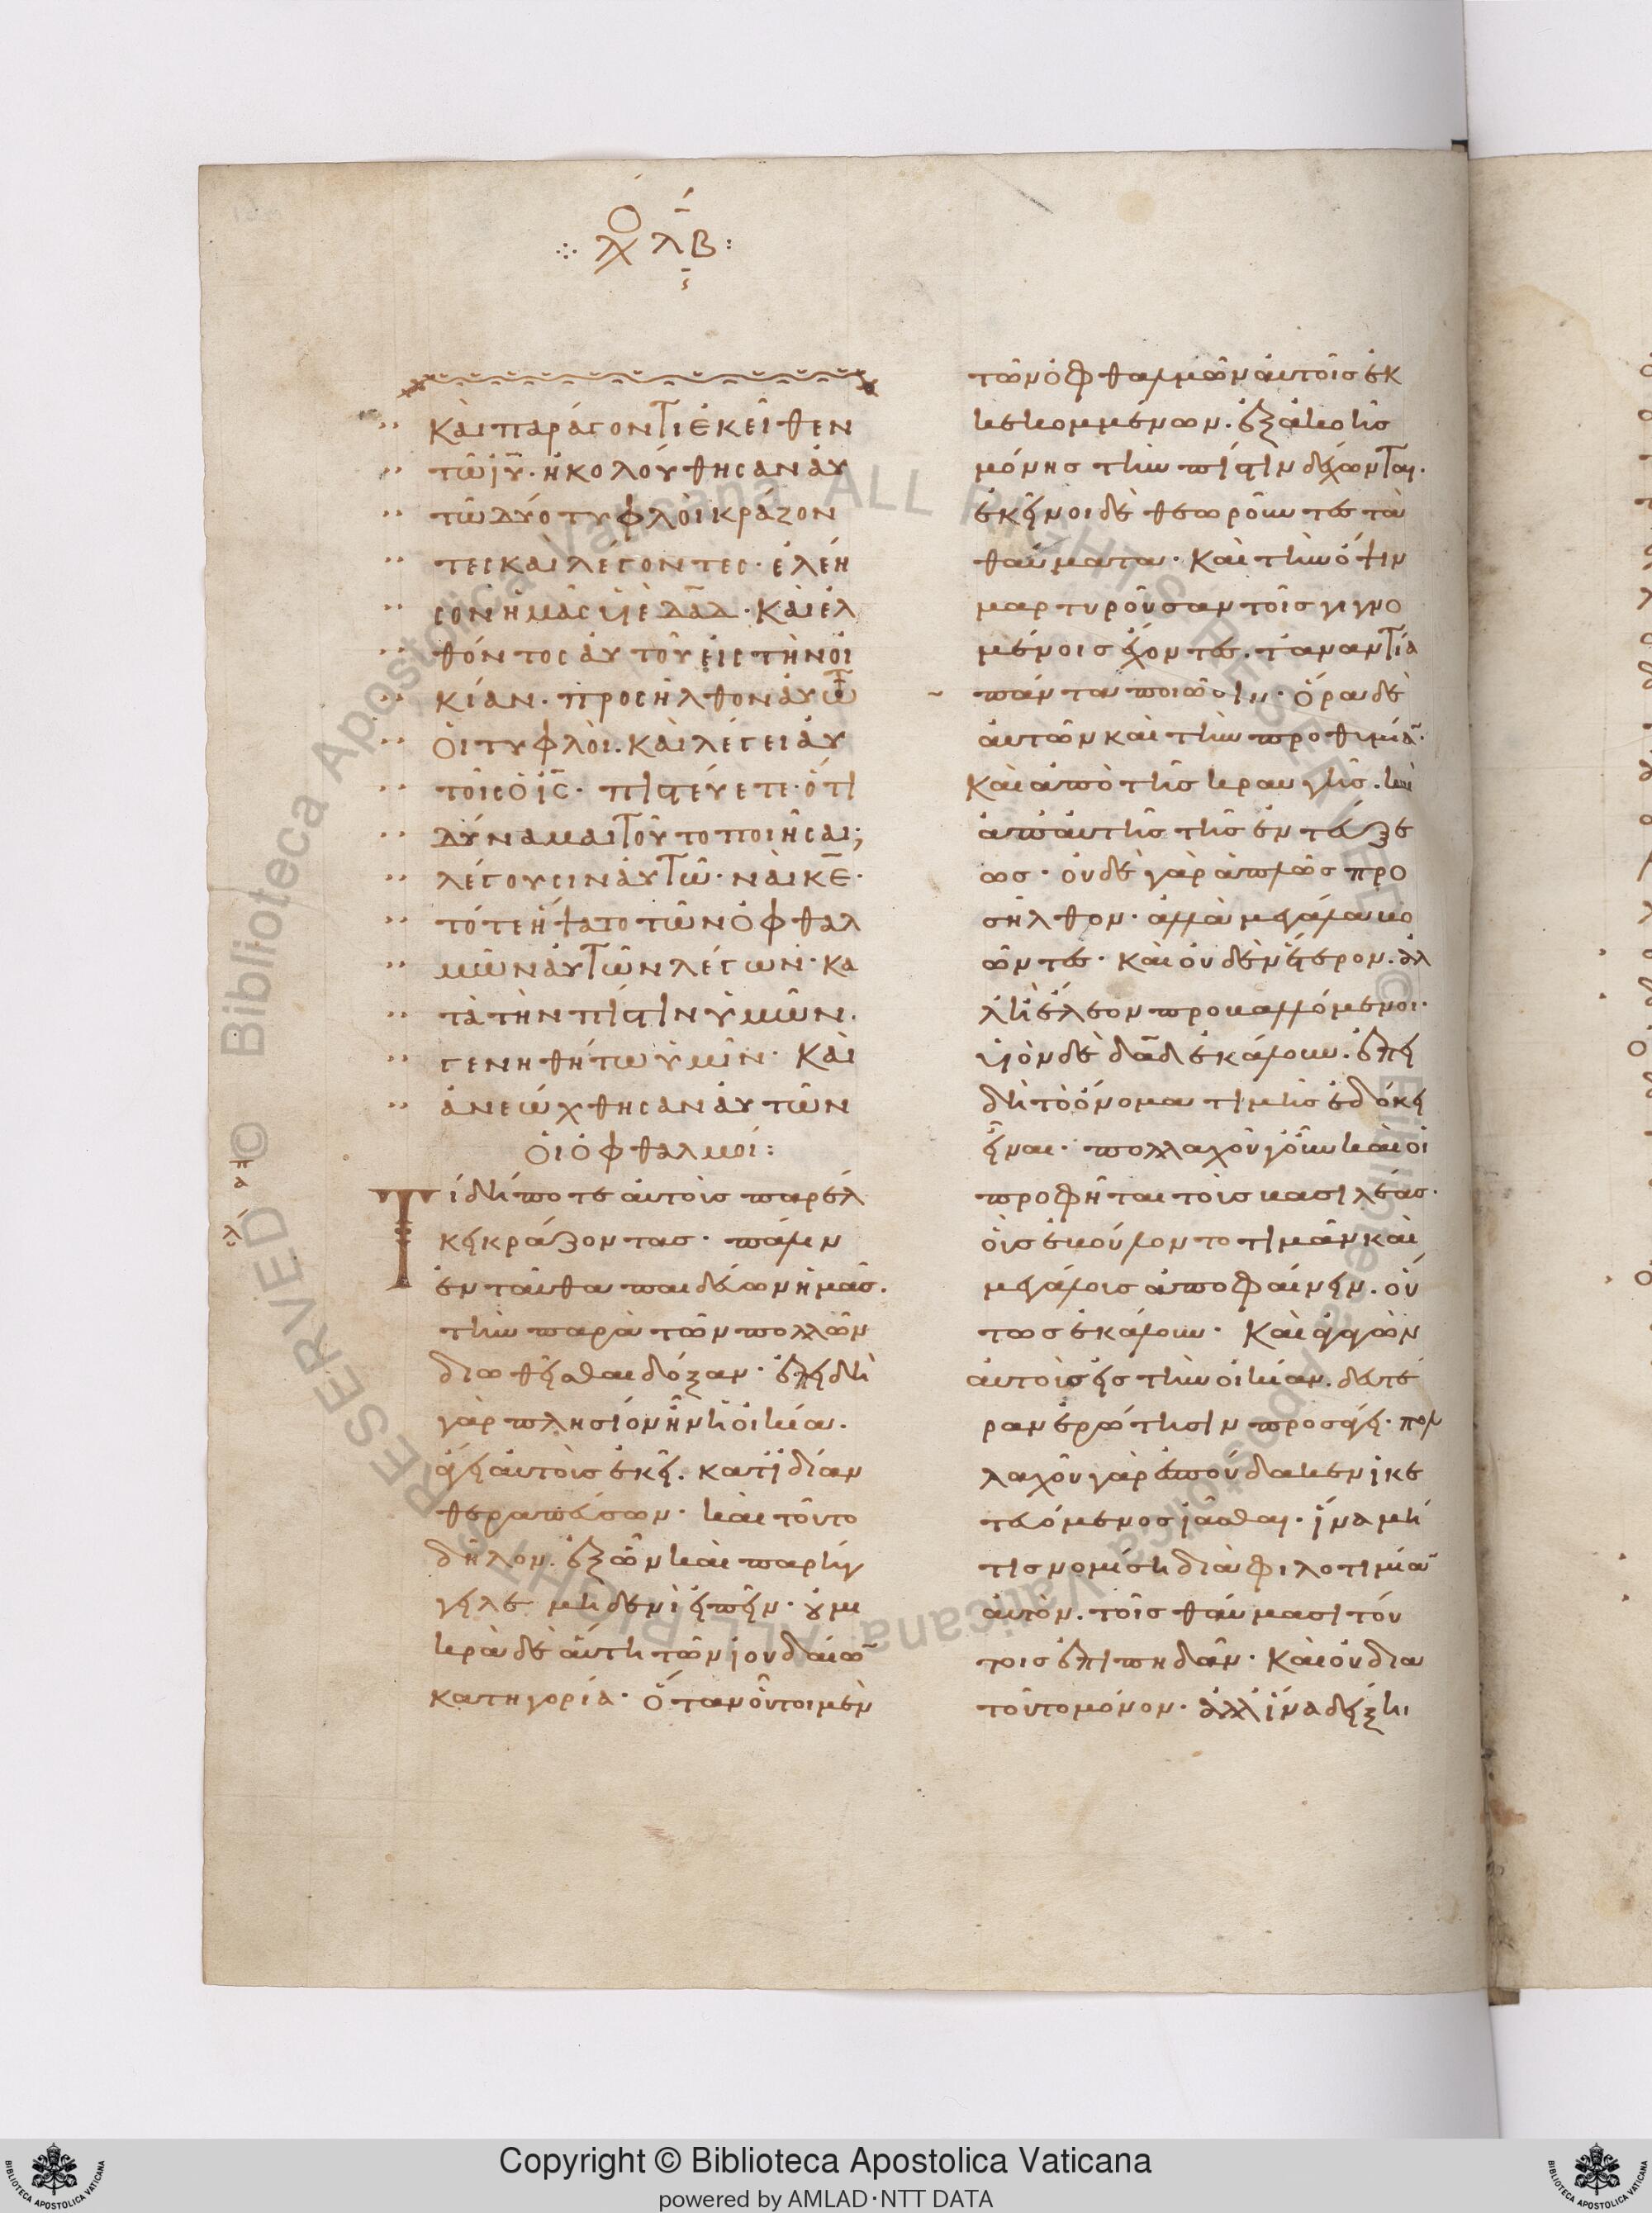 λόγ ΛΒ:
Καὶ παράγοντι ἐκεῖθεν
τῶ ἰῦ· ἠκολούθησαν αὐ
τῶ δύο τυφλοὶ κράζον
τες καὶ λέγοντες· ἐλέη
σον ἡμᾶς υἱὲ δαδ· Καὶ ἐλ
θόντος αὐτοῦ εἰς τὴν οἰ
κίαν· προσῆλθον αὐτῶ
οἱ τυφλοὶ. Καὶ λέγει αὐ
τοῖς ὁ ἰς· πιστεύετε· ὅτι
δύναμαι τοῦτο ποιῆσαι;
λέγουσιν αὐτῶ· ναὶ κε·
τότε ἥψατο τῶν ὀφθαλ
μῶν αὐτῶν λέγων· κα
τὰ τὴν πίστιν ὑμῶν.
γενηθήτω ὑμῖν· Καὶ
ἀνεώχθησαν αὐτῶν
οἱ ὀφθαλμοί:
Τί δήποτε αὐτοὺς παρέλ
κει κράζοντας· πάλιν
ἐνταῦθα παιδεύων ἡμᾶς.
τὴν παρὰ τῶν πολλῶν
διωθεῖσθαι δόξαν· ἐπειδὴ
γὰρ πλησίον ἦν ἡ οἰκία.
ἄγει αὐτοὺς ἐκεῖ. κατϊδίαν
θεραπεύσων· καὶ τοῦτο
δῆλον. ἐξ ὧν καὶ παρήγ
γειλε μηδενὶ εἰπεῖν· οὐ μι
κρὰ δὲ αὕτη τῶν ἰουδαίω
κατηγορία· ὅταν οὗτοι μὲν
τῶν ὀφθαλμῶν αὐτοῖς ἐκ
κεκομμένων. ἐξ ἀκοῆς
μόνης τὴν πίστιν δέχωνται.
ἐκεῖνοι δὲ θεωροῦντες τὰ
θαύματα· καὶ τὴν ὄψιν
μαρτυροῦσαν τοῖς γιγνο
μένοις ἔχοντες. τἀναντία
πάντα ποιῶσιν· ὅρα δὲ
αὐτῶν καὶ τὴν προθυμία·
Καὶ ἀπὸ τῆς κραυγῆς. καὶ
ἀπ' αὐτῆς τῆς ἐντεύξε
ως· οὐδὲ γὰρ ἁπλῶς προ
σῆλθον· ἀλλὰ μεγάλα βο
ῶντες· καὶ οὐδὲν ἕτερον. ἀλ
λ' ἢ ἔλεον προβαλλόμενοι·
υἱὸν δὲ δαδ ἐκάλουν. ἐπει
δὴ τὸ ὄνομα τιμῆς ἐδόκει
εἶναι· πολλαχοῦ γοῦν καὶ οἱ
προφῆται τοὺς βασιλέας·
οὓς ἐβούλοντο τιμᾶν καὶ
μεγάλους ἀποφαίνειν. οὕ
τως ἐκάλουν· Καὶ ἀγαγὼν
αὐτοὺς εἰς τὴν οἰκίαν. δευτέ
ραν ἐρώτησιν προσάγει· πολ
λαχοῦ γὰρ ἐσπούδακεν ἱκε
τευόμενος ἰᾶσθαι· ἵνα μή
τις νομίση διὰ φιλοτιμία
αὐτὸν. τοῖς θαύμασι τού
τοις ἐπιπηδᾶν· Καὶ οὐ δια
τοῦτο μόνον· ἀλλ ἵνα δείξηι